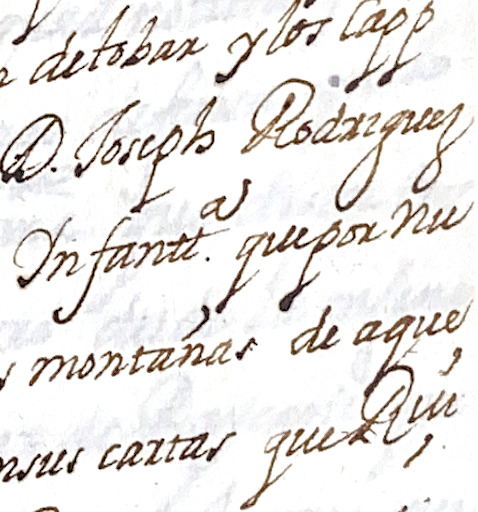 de tobar y los Capp
D. Joseph Rodriguez
Infantt.ª que por nu
s montañas de aque
nsus cartas que